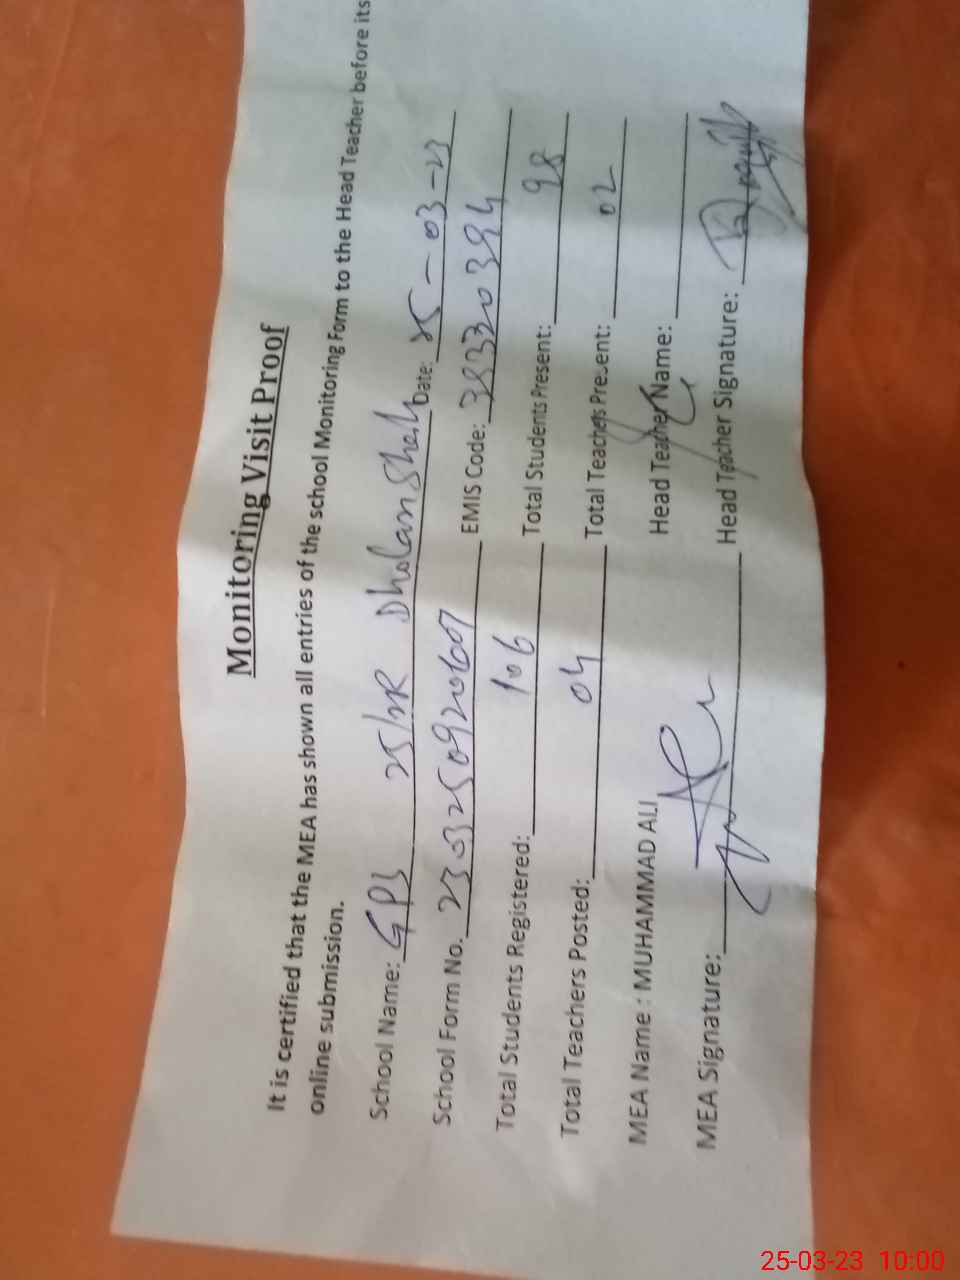 Monitoring Visit Proof
It is certified that the MEA has shown all entries of the school Monitoring Form to the Head Teacher before its
online submission.
School Name: GPS 25/2R Dholan Sheikh Date: 25-03-23
School Form No. 230325092060 EMIS Code: 38330394
Total Students Registered: 106 Total Students Present: 98
Total Teachers Posted: 04 Total Teachers Present: 02
MEA Name : MUHAMMAD ALI Head Teacher Name:
MEA Signature: Head Teacher Signature:
25-03-23 10:00